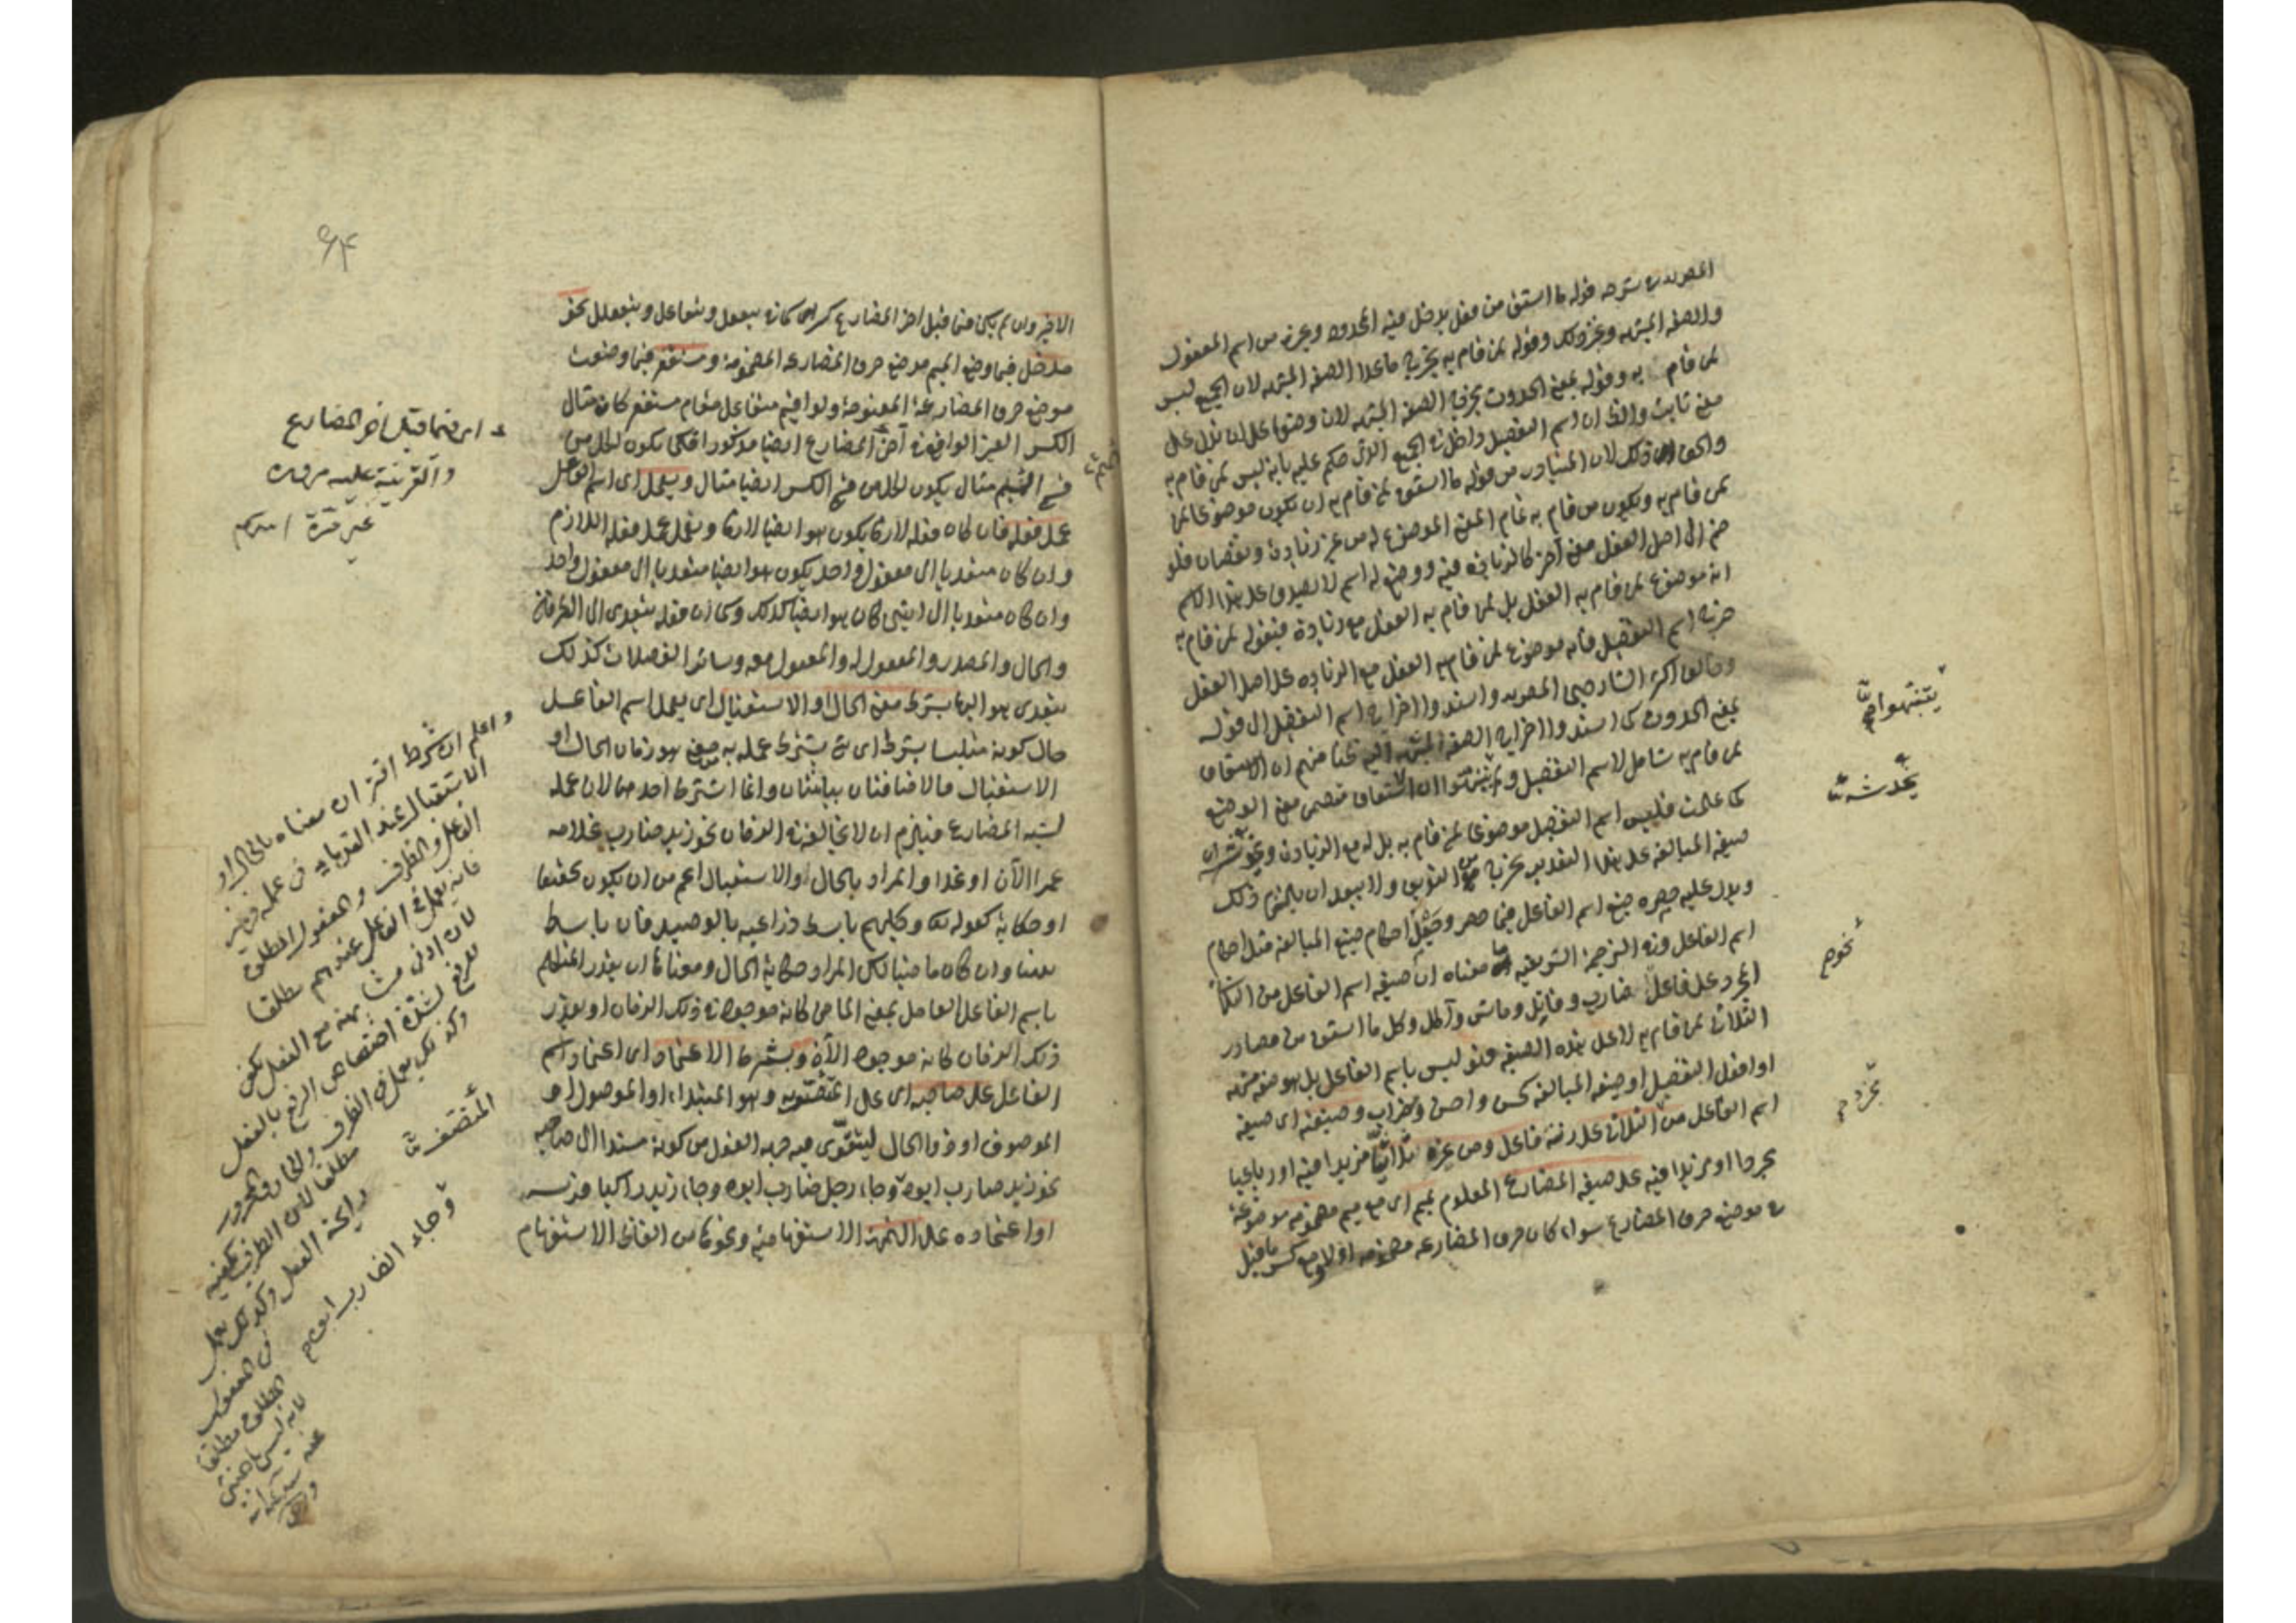 المصرية شرحه قوله ما اشتق من فعل يدخل فيه المحدود وغيره من اسم المفعول
والصفة المشبهة وغير ذلك وقوله لمن قام به يخرج ما عدا الصفة المشبهة لان الجميع ليس
لمن قام به وقوله بمعنى الحدوث يخرج الصفة المشبهة لان وضعها على ان تدل على
معنى ثابت والظ ان اسم التفضيل داخل في الجميع الذي حكم عليه بانه ليس لمن قام به
والحق ذلك لان المتبادر من قوله ما اشتق لمن قام به ان يكون موضوعا لما
لمن قام به ويكون من قام به تمام المعنى الموضوع له من غير زيادة ونقصان فلو
ضم الى اصل الفعل معنى آخر كالزيادة فيه ووضع له اسم لا يصدق على هذا الاسم
انه موضوع لمن قام به الفعل بل لمن قام به الفعل مع زيادة فبقوله لمن قام به
خرج اسم التفضيل فانه موضوع لمن قام به الفعل مع الزيادة على اصل الفعل
وخالف اكثر الشارحين المصرية واسندوا اخراج اسم التفضيل الى قوله
بمعنى الحدوث كما اسندوا اخراج الصفة المشبهة اليه ظنا منهم ان الاشتقاق
لمن قام به شامل لاسم التفضيل ولم يتنبهوا ان الاشتقاق متضمن معنى الوضع
كما علمت فليس اسم التفضيل موضوعا لمن قام به بل له مع الزيادة ويخدشه ان
صيغة المبالغة على هذا التقدير يخرج من التعريف ولا يبعد ان يلتزم ذلك
ويدل عليه حصره صيغ اسم الفاعل فيما حصر وجعل احكام صيغ المبالغة مثل احكام
اسم الفاعل وفي الترجمة الشريفية ما معناه ان صيغة اسم الفاعل من الثلاثي
المجرد على فاعل ضارب وقاتل وماش وآكل وكل ما اشتق من مصادر
الثلاثي لمن قام به لا على هذه الصيغة فهو ليس باسم الفاعل بل هو صفة مشبهة
او افعل التفضيل او صيغة المبالغة كحسن واحسن وضراب وصيغته اى صيغة
اسم الفاعل من الثلاثى على زنة فاعل ومن غيره ثلاثيا مزيدا فيه او رباعيا
مجردا او مزيدا فيه على صيغة المضارع المعلوم بميم اى مع ميم مضمومة موضوعة
في موضع حرف المضارع سواء كان حرف المضارعة مضمومة او لا ومع كسر ما قبل
يتنبهوا
يخدشه
نحو
مجرد
الاخير وان لم يكن فيما قبل آخر المضارع كسر كما في يتفعل ويتفاعل ويتفعلل نحو
مدخل فيما وضع الميم موضع حرف المضارعة المضمومة ومستغفر فيما وضعت
موضع حرف المضارعة المفتوحة ولو اقيم متفاعل مقام مستغفر كان مثال
الكسر الغير الواقع في آخر المضارع ايضا مذكورا فكما يكون لكل من
فتح الميم مثال يكون لكل من فتح الكسر ايضا مثال ويعمل اى اسم الفاعل
عمل فعله فان كان فعله لازما يكون هو ايضا لازما ويعمل عمل فعله اللازم
وان كان متعديا الى مفعول واحد يكون هو ايضا متعديا الى مفعول واحد
وان كان متعديا الى اثنين كان هو ايضا كذلك وكما ان فعله يتعدى الى الظرف
والحال والمصدر والمفعول له والمفعول معه وسائر الفضلات كذلك
يتعدى هو اليها بشرط معنى الحال او الاستقبال اى يعمل اسم الفاعل
حال كونه متلبسا بشرط اى شئ يشترط عمله به من معنى هو زمان الحال او
الاستقبال فالاضافتان بيانيتان وانما اشترط احدهما لان عمله
لشبه المضارع فيلزم ان لا يخالفه في الزمان نحو زيد ضارب غلامه
عمرا الآن او غدا والمراد بالحال او الاستقبال اعم من ان يكون تحقيقا
او حكاية كقوله تعالى وكلبهم باسط ذراعيه بالوصيد فان باسط
ههنا وان كان ماضيا لكن المراد حكاية الحال ومعناها ان يقدر المتكلم
باسم الفاعل العامل بمعنى الماضى كانه موجود في ذلك الزمان او يقدر
ذلك الزمان كانه موجود الآن وبشرط الاعتماد اى اعتماد اسم
الفاعل على صاحبه اى على المتصف به وهو المبتداء او الموصول او
الموصوف او ذو الحال ليتقوى فيه جهة الفعل من كونه مسندا الى صاحبه
نحو زيد ضارب ابوه وجاء رجل ضارب ابوه وجاء زيد راكبا فرسه
او اعتماده على الهمزة الاستفهامية ونحوها من الفاظ الاستفهام
۶۴
اى فيما قبل آخر المضارع
والقرينة عليه
واعلم ان شرط اقتران معناه بالحال او
الاستقبال عند القدماء في عمله في غير
الفاعل والظرف والمفعول المطلق
فانه يعمل في الفاعل عندهم مطلقا
لان ادنى مشابهته مع الفعل يكفى
للرفع لشدة اختصاص الرفع بالفعل
وكذلك يعمل في الظرف والجار والمجرور
مطلقا لان الظرف يكفيه
رايحة الفعل وكذلك يعمل
في المفعول
المطلق مطلقا
لانه ليس باجنبى
عنه
المتصف
وجاء الضارب ابوه